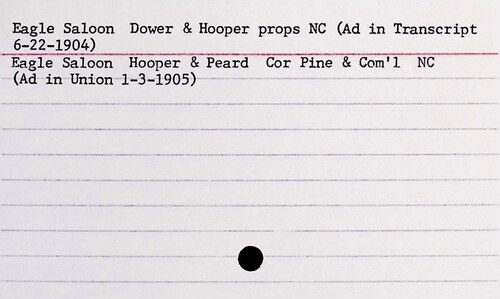 Eagle Saloon  Dower & Hooper props NC (Ad in Transcript
6-22-1904)
Eagle Saloon  Hooper & Peard  Cor Pine & Com'l  NC
(Ad in Union 1-3-1905)